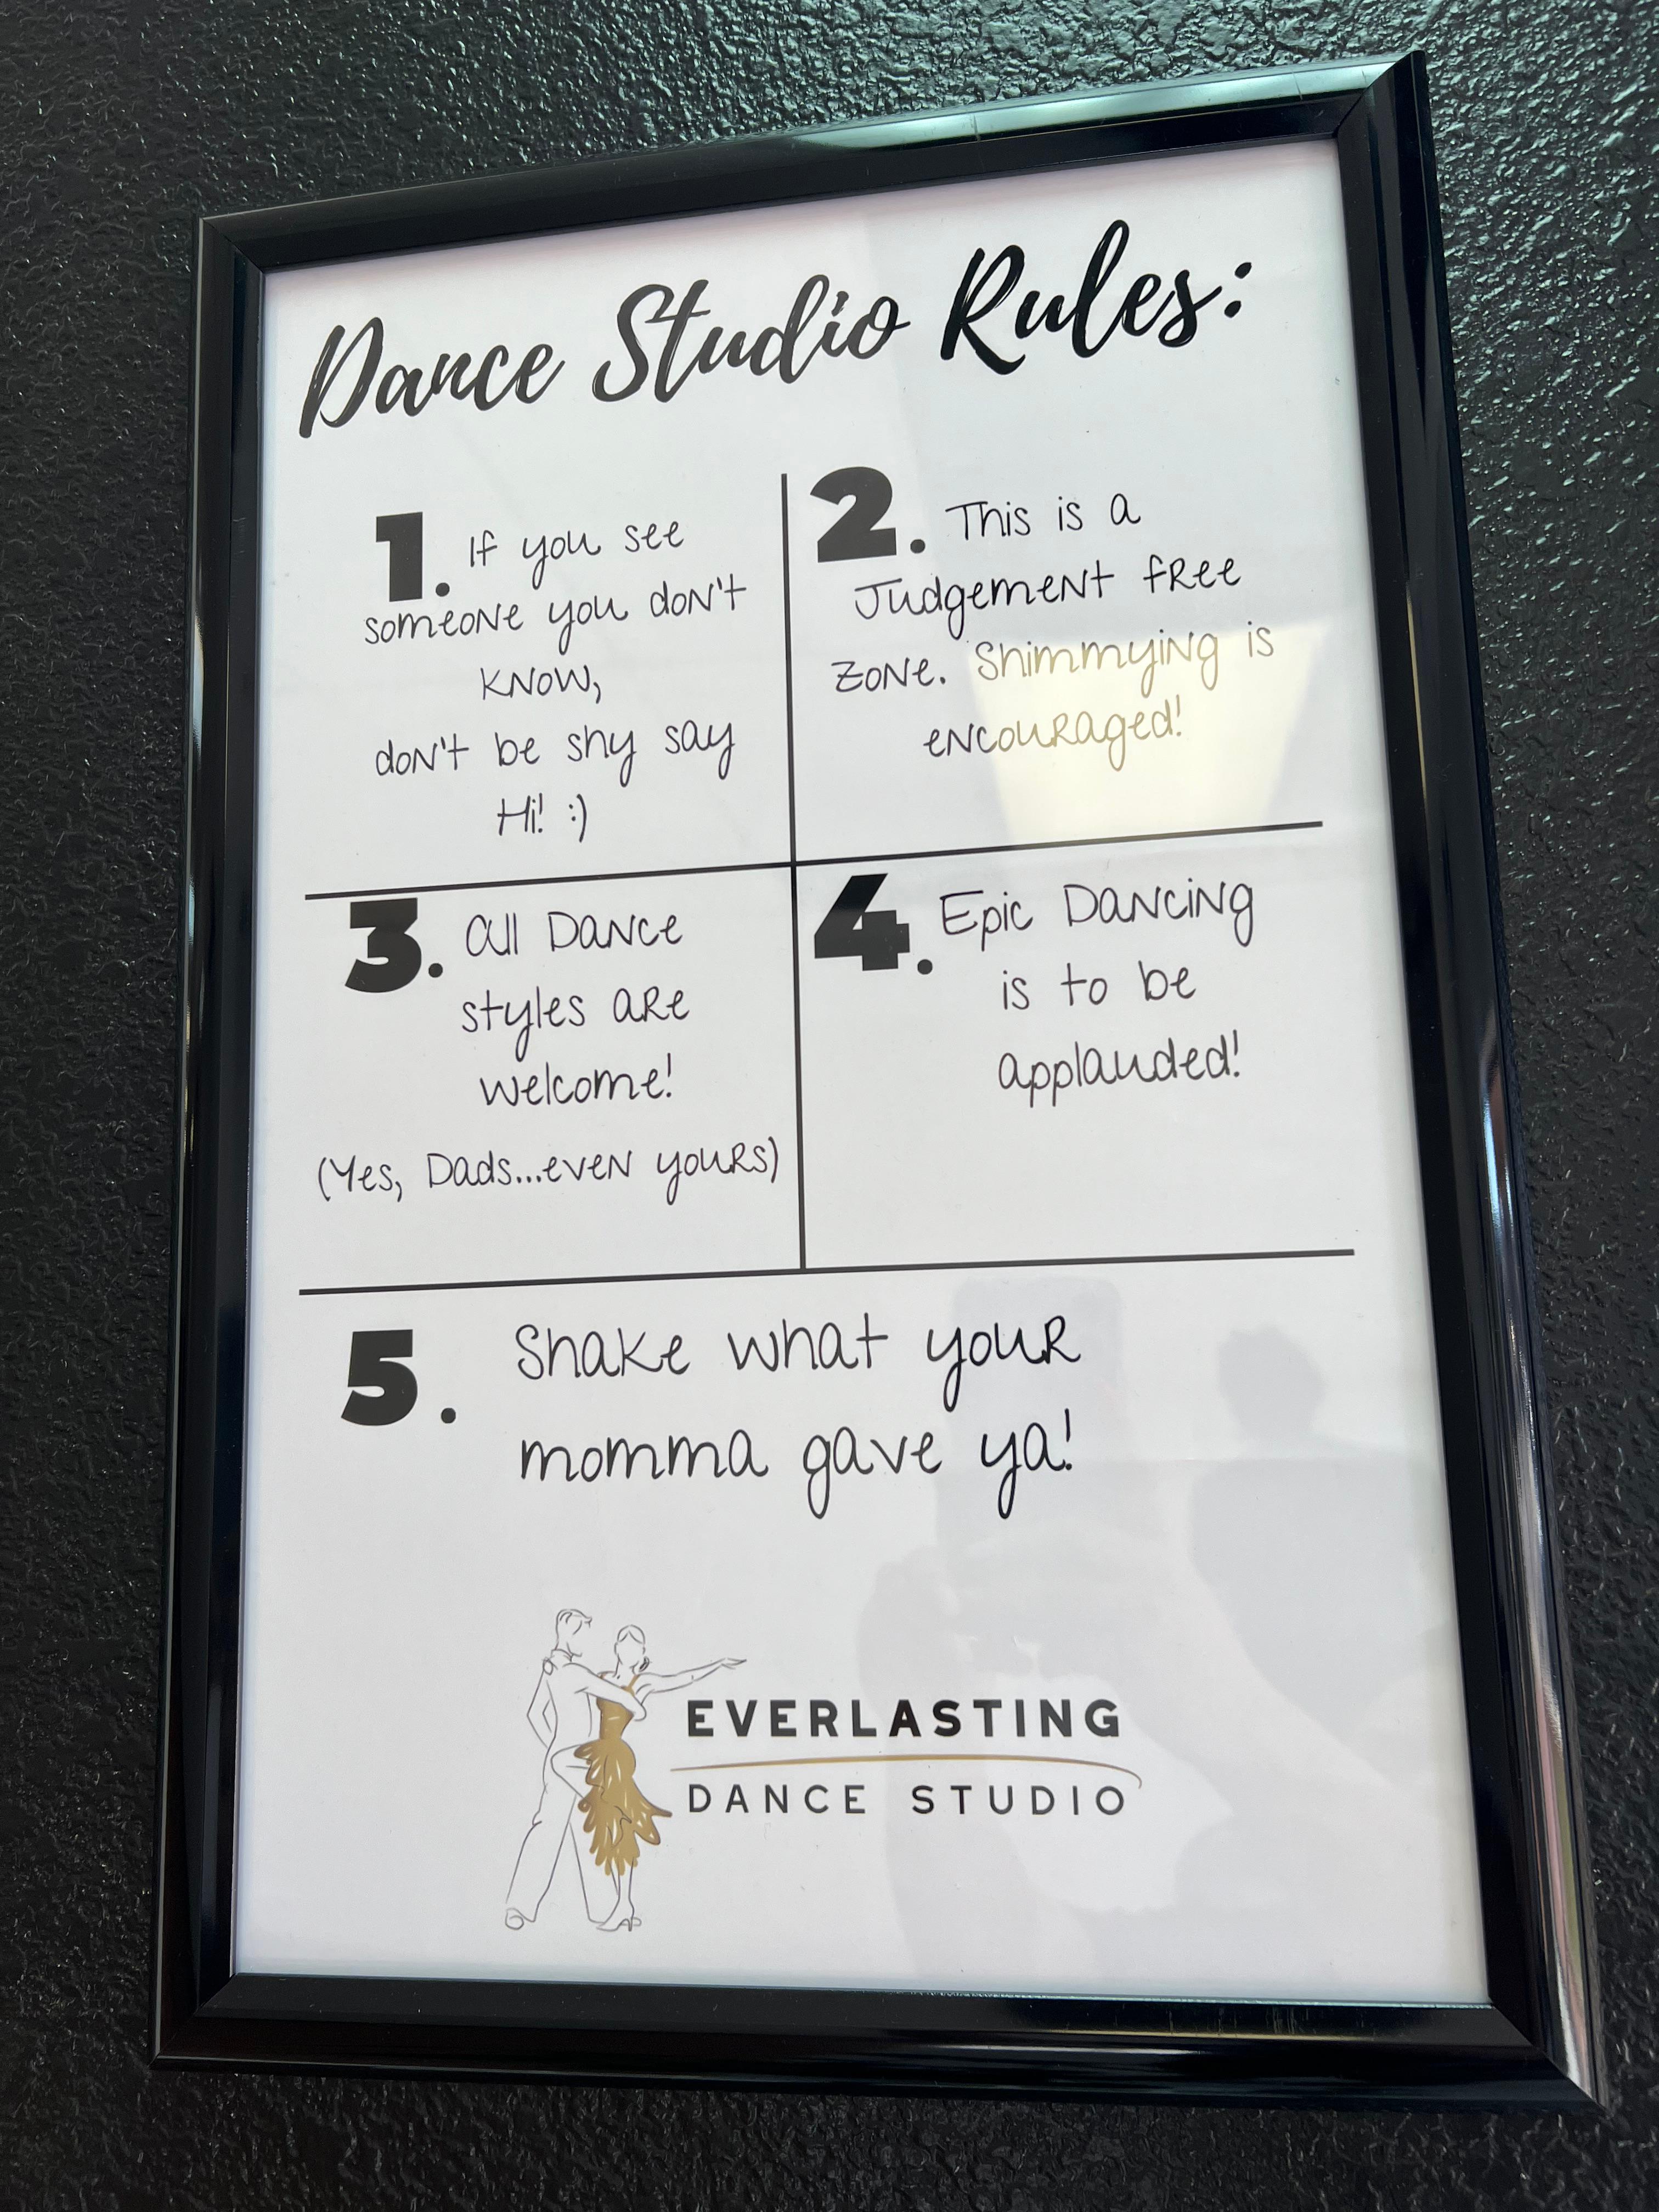 Dance Studio Rules:
1. If you see
someone you don't
know,
don't be shy say
Hi! :)
2. This is a
Judgement free
zone. Shimmying is
encouraged!
3. All Dance
styles are
welcome!
(Yes, Dads...even yours)
4. Epic Dancing
is to be
applauded!
5. Shake what your
momma gave ya!
EVERLASTING
DANCE STUDIO